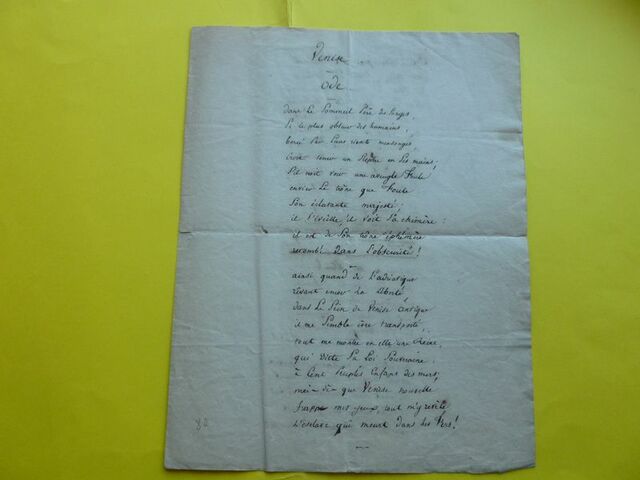 Venise
Ode
dans le Sommeil Père des Songes
Si le plus obscur des humains,
bercé par Leurs riants mensonges,
croit tenir un Sceptre en Ses mains;
S'il voit une aveugle foule
envier Le trône que foule
Son éclatante majesté;
il S'éveille, il voit Sa chimère:
il est de Son trône éphémère
retombé dans L'obscurité!
ainsi quand de L'adriatique
rêvant encor la liberté,
dans Le Sein de Venise antique
il me Semble être transporté,
tout me montre en elle une Reine,
qui dicte Sa Loi Souveraine
à Cent peuples Enfans des mers;
mais dès que Venise nouvelle
frappe mes yeux, tout m'y révèle
L'esclave qui meurt dans Les fers!